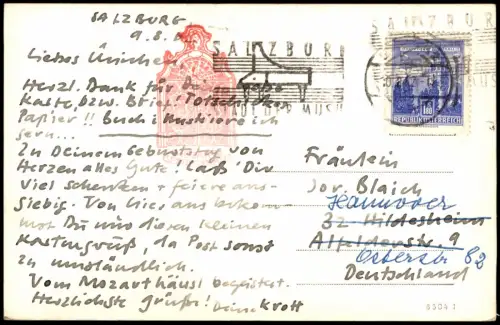 SALZBURG
9.8.
Liebes
Herzl. Dank für Deine liebe
Karte, bzw. Brief! Totschickes
Papier!! Buch illustriere ich
gern...
Zu Deinem Geburtstag von
Herzen alles Gute! Laß' Dir
viel schenken + feiere aus-
giebig. Von hier aus bekom-
mst Du nur diesen kleinen
Kartengruß, da Post sonst
zu umständlich.
Vom Mozarthäusl begeistert.
Herzlichste Grüße! Deine Krott
SALZBURG
STADT DER MUSIK
SALZBURG
REPUBLIK ÖSTERREICH
Fräulein
Blaich
Hannover
32 Hildesheim
Alfelderstr. 9
Osterstr 82
Deutschland